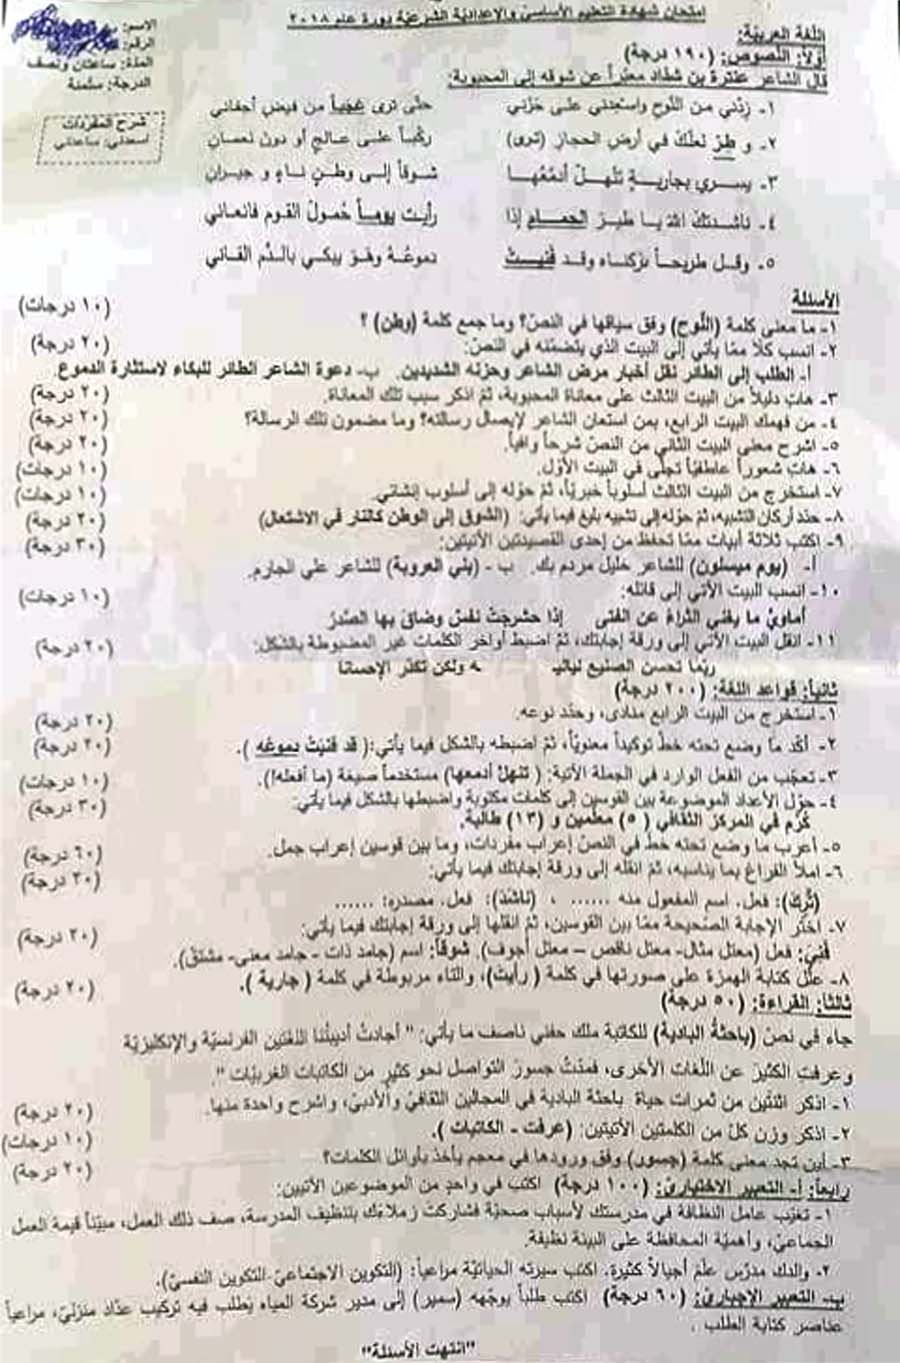 امتحان شهادة التعليم الأساسي والإعدادية الشرعية دورة عام ٢٠١٨
الاسم:
الرقم:
المدة: ساعتان ونصف
الدرجة: ستمئة
اللغة العربية:
أولاً: النصوص: (١٩٠ درجة)
قال الشاعر عنترة بن شداد معبراً عن شوقه إلى المحبوبة:
شرح المفردات
أسعدني: ساعدني
١- زدني من النوح واسعدني على حزني حتى ترى عجباً من فيض أجفاني
٢- و طر لعلك في أرض الحجاز (ترى) ركباً على عالج أو دون نعمان
٣- يسري بجارية تنهل أدمعها شوقاً إلى وطن ناء و جيران
٤- ناشدتك الله يا طير الحمام إذا رأيت يوماً حمول القوم فانعاني
٥- وقل طريحاً تركناه وقد فنيت دموعه وهو يبكي بالدم القاني
الأسئلة
١- ما معنى كلمة (النوح) وفق سياقها في النص؟ وما جمع كلمة (وطن) ؟ (١٠ درجات)
٢- انسب كلاً مما يأتي إلى البيت الذي يتضمنه في النص: (٢٠ درجة)
أ- الطلب إلى الطائر نقل أخبار مرض الشاعر وحزنه الشديدين. ب- دعوة الشاعر الطائر للبكاء لاستثارة الدموع
٣- هات دليلاً من البيت الثالث على معاناة المحبوبة، ثم اذكر سبب تلك المعاناة. (٢٠ درجة)
٤- من فهمك البيت الرابع، بمن استعان الشاعر لإيصال رسالته؟ وما مضمون تلك الرسالة؟ (٢٠ درجة)
٥- اشرح معنى البيت الثاني من النص شرحاً وافياً. (٢٠ درجة)
٦- هات شعوراً عاطفياً تجلى في البيت الأول. (١٠ درجات)
٧- استخرج من البيت الثالث أسلوباً خبرياً، ثم حوله إلى أسلوب إنشائي. (١٠ درجات)
٨- حدد أركان التشبيه، ثم حوله إلى تشبيه بليغ فيما يأتي: (الشوق إلى الوطن كالنار في الاشتعال) (٢٠ درجة)
٩- اكتب ثلاثة أبيات مما تحفظ من إحدى القصيدتين الآتيتين: (٣٠ درجة)
أ- (يوم ميسلون) للشاعر خليل مردم بك. ب - (بني العروبة) للشاعر علي الجارم.
١٠- انسب البيت الآتي إلى قائله: (١٠ درجات)
أماوي ما يغني الثراء عن الفتى إذا حشرجت نفس وضاق بها الصدر
١١- انقل البيت الآتي إلى ورقة إجابتك، ثم اضبط أواخر الكلمات غير المضبوطة بالشكل: (٢٠ درجة)
ربما تحسن الصنيع لياليـ ـه ولكن تكدر الإحسانا
ثانياً: قواعد اللغة: (٢٠٠ درجة)
١- استخرج من البيت الرابع منادى، وحدد نوعه. (٢٠ درجة)
٢- أكد ما وضع تحته خط توكيداً معنوياً، ثم اضبطه بالشكل فيما يأتي:( قد فنيت دموعه ). (٢٠ درجة)
٣- تعجب من الفعل الوارد في الجملة الآتية: ( تنهل أدمعها) مستخدماً صيغة (ما أفعله!). (١٠ درجات)
٤- حول الأعداد الموضوعة بين القوسين إلى كلمات مكتوبة واضبطها بالشكل فيما يأتي: (٣٠ درجة)
كرم في المركز الثقافي ( ٥) معلمين و (١٣) طالبة.
٥- أعرب ما وضع تحته خط في النص إعراب مفردات، وما بين قوسين إعراب جمل. (٦٠ درجة)
٦- املأ الفراغ بما يناسبه، ثم انقله إلى ورقة إجابتك فيما يأتي: (٢٠ درجة)
(ترك): فعل. اسم المفعول منه ...... ، (ناشد): فعل. مصدره: ......
٧- اختر الإجابة الصحيحة مما بين القوسين، ثم انقلها إلى ورقة إجابتك فيما يأتي: (٢٠ درجة)
فني: فعل (معتل مثال- معتل ناقص – معتل أجوف). شوقاً: اسم (جامد ذات - جامد معنى- مشتق).
٨- علل كتابة الهمزة على صورتها في كلمة ( رأيت)، والتاء مربوطة في كلمة ( جارية ). (٢٠ درجة)
ثالثاً: القراءة: (٥٠ درجة)
جاء في نص (باحثة البادية) للكاتبة ملك حفني ناصف ما يأتي: " أجادت أديبتنا اللغتين الفرنسية والإنكليزية
وعرفت الكثير عن اللغات الأخرى، فمدت جسور التواصل نحو كثير من الكاتبات الغربيات ".
١- اذكر اثنتين من ثمرات حياة باحثة البادية في المجالين الثقافي والأدبي، واشرح واحدة منها. (٢٠ درجة)
٢- اذكر وزن كل من الكلمتين الآتيتين: (عرفت - الكاتبات ). (١٠ درجات)
٣- أين تجد معنى كلمة (جسور) وفق ورودها في معجم يأخذ بأوائل الكلمات؟ (٢٠ درجة)
رابعاً: أ- التعبير الاختياري: (١٠٠ درجة) اكتب في واحد من الموضوعين الآتيين:
١- تغيب عامل النظافة في مدرستك لأسباب صحية فشاركت زملاءك بتنظيف المدرسة، صف ذلك العمل، مبيناً قيمة العمل
الجماعي، وأهمية المحافظة على البيئة نظيفة.
٢- والدك مدرس علم أجيالاً كثيرة. اكتب سيرته الحياتية مراعياً: (التكوين الاجتماعي- التكوين النفسي).
ب- التعبير الإجباري: (٦٠ درجة) اكتب طلباً يوجهه (سمير) إلى مدير شركة المياه يطلب فيه تركيب عداد منزلي، مراعياً
عناصر كتابة الطلب .
"انتهت الأسئلة"